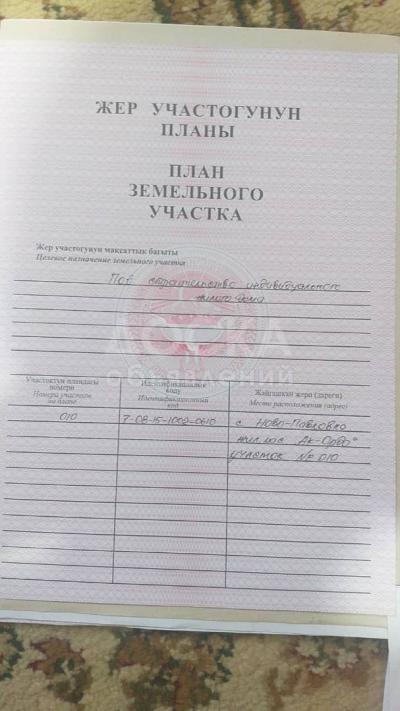 ЖЕР УЧАСТОГУНУН
ПЛАНЫ
ПЛАН
ЗЕМЕЛЬНОГО
УЧАСТКА
Жер участогунун максаттык багыты
Целевое назначение земельного участка
Под строительство индивидуального
жилого дома
ДОСКА
объявлений
Участоктун пландагы
номери
Номера участков
на плане
Идентификациялык
коду
Идентификационный
код
Жайгашкан жери (дареги)
Место расположения (адрес)
010
7-08-15-1002-0610
с Ново-Павловка
жил мас Ак-Ордо"
участок № 010